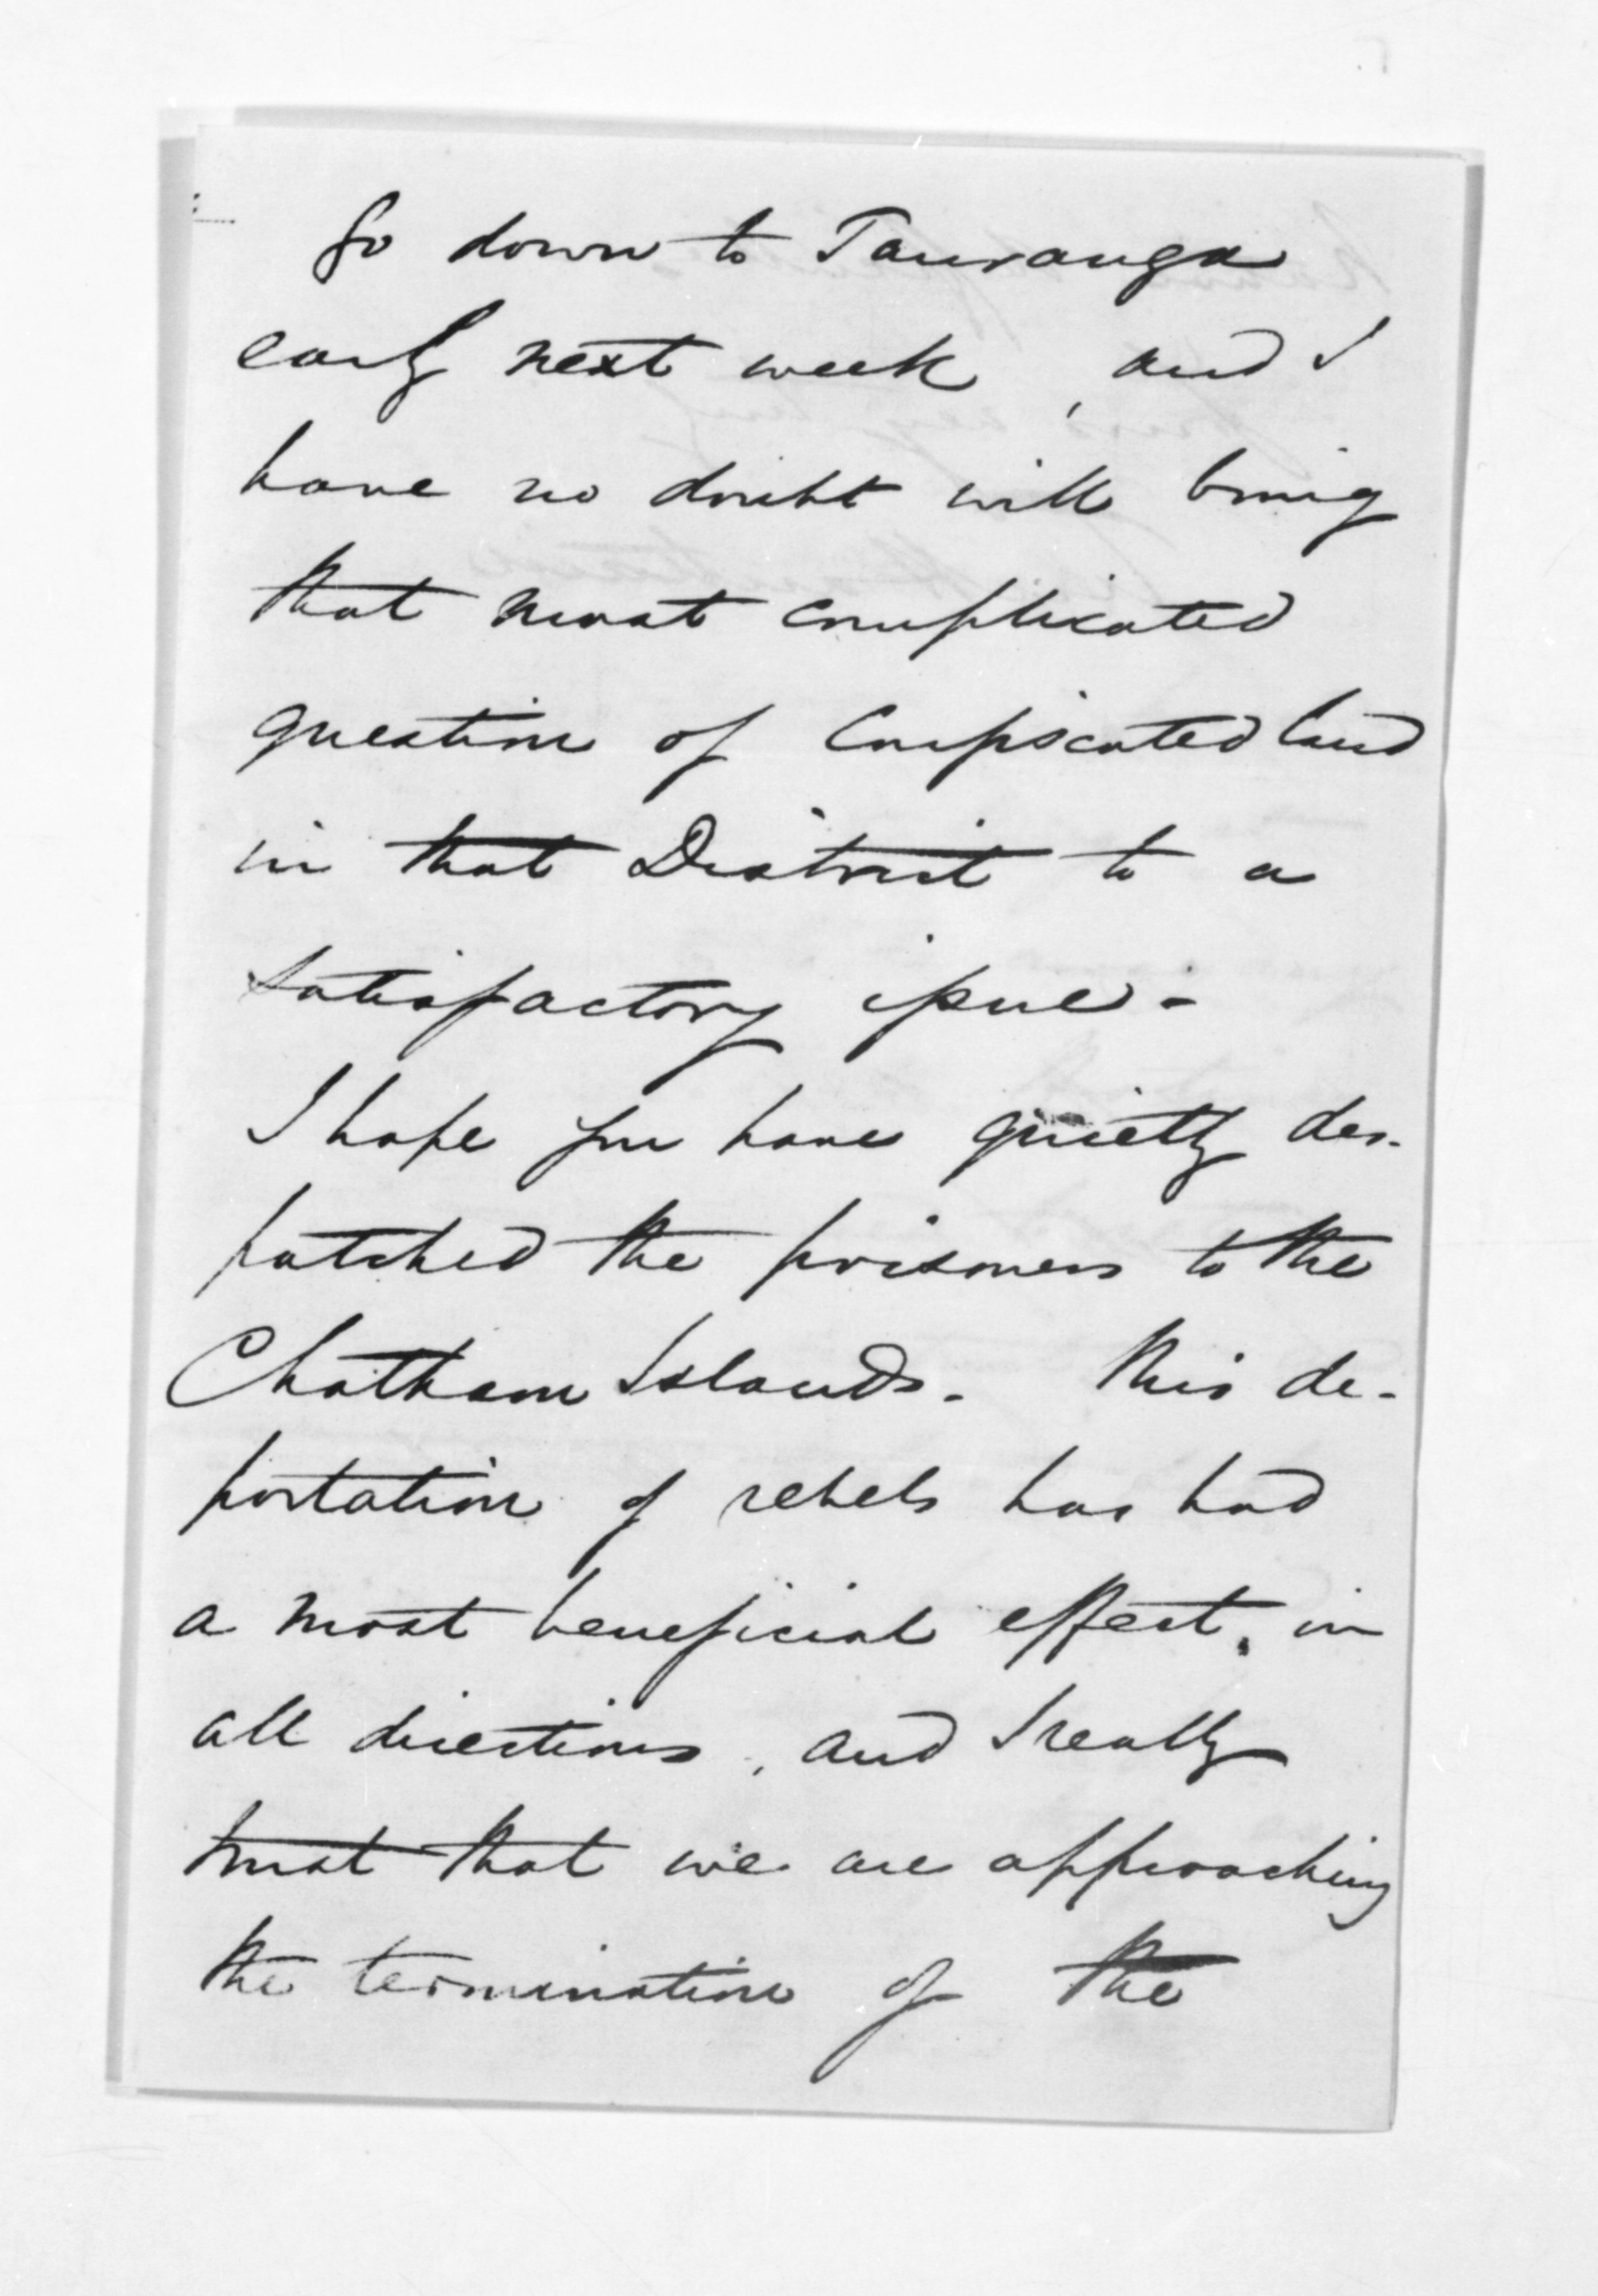 go down to Tauranga
early next week, and I
have no doubt will bring
that most complicated
question of Confiscated land
in that District to a
satisfactory issue -
I hope you have quietly des-
patched the prisoners to the
Chatham Islands. This de-
portation of rebels has had
a most beneficial effect, in
all directions, and I really
trust that we are approaching
the termination of the